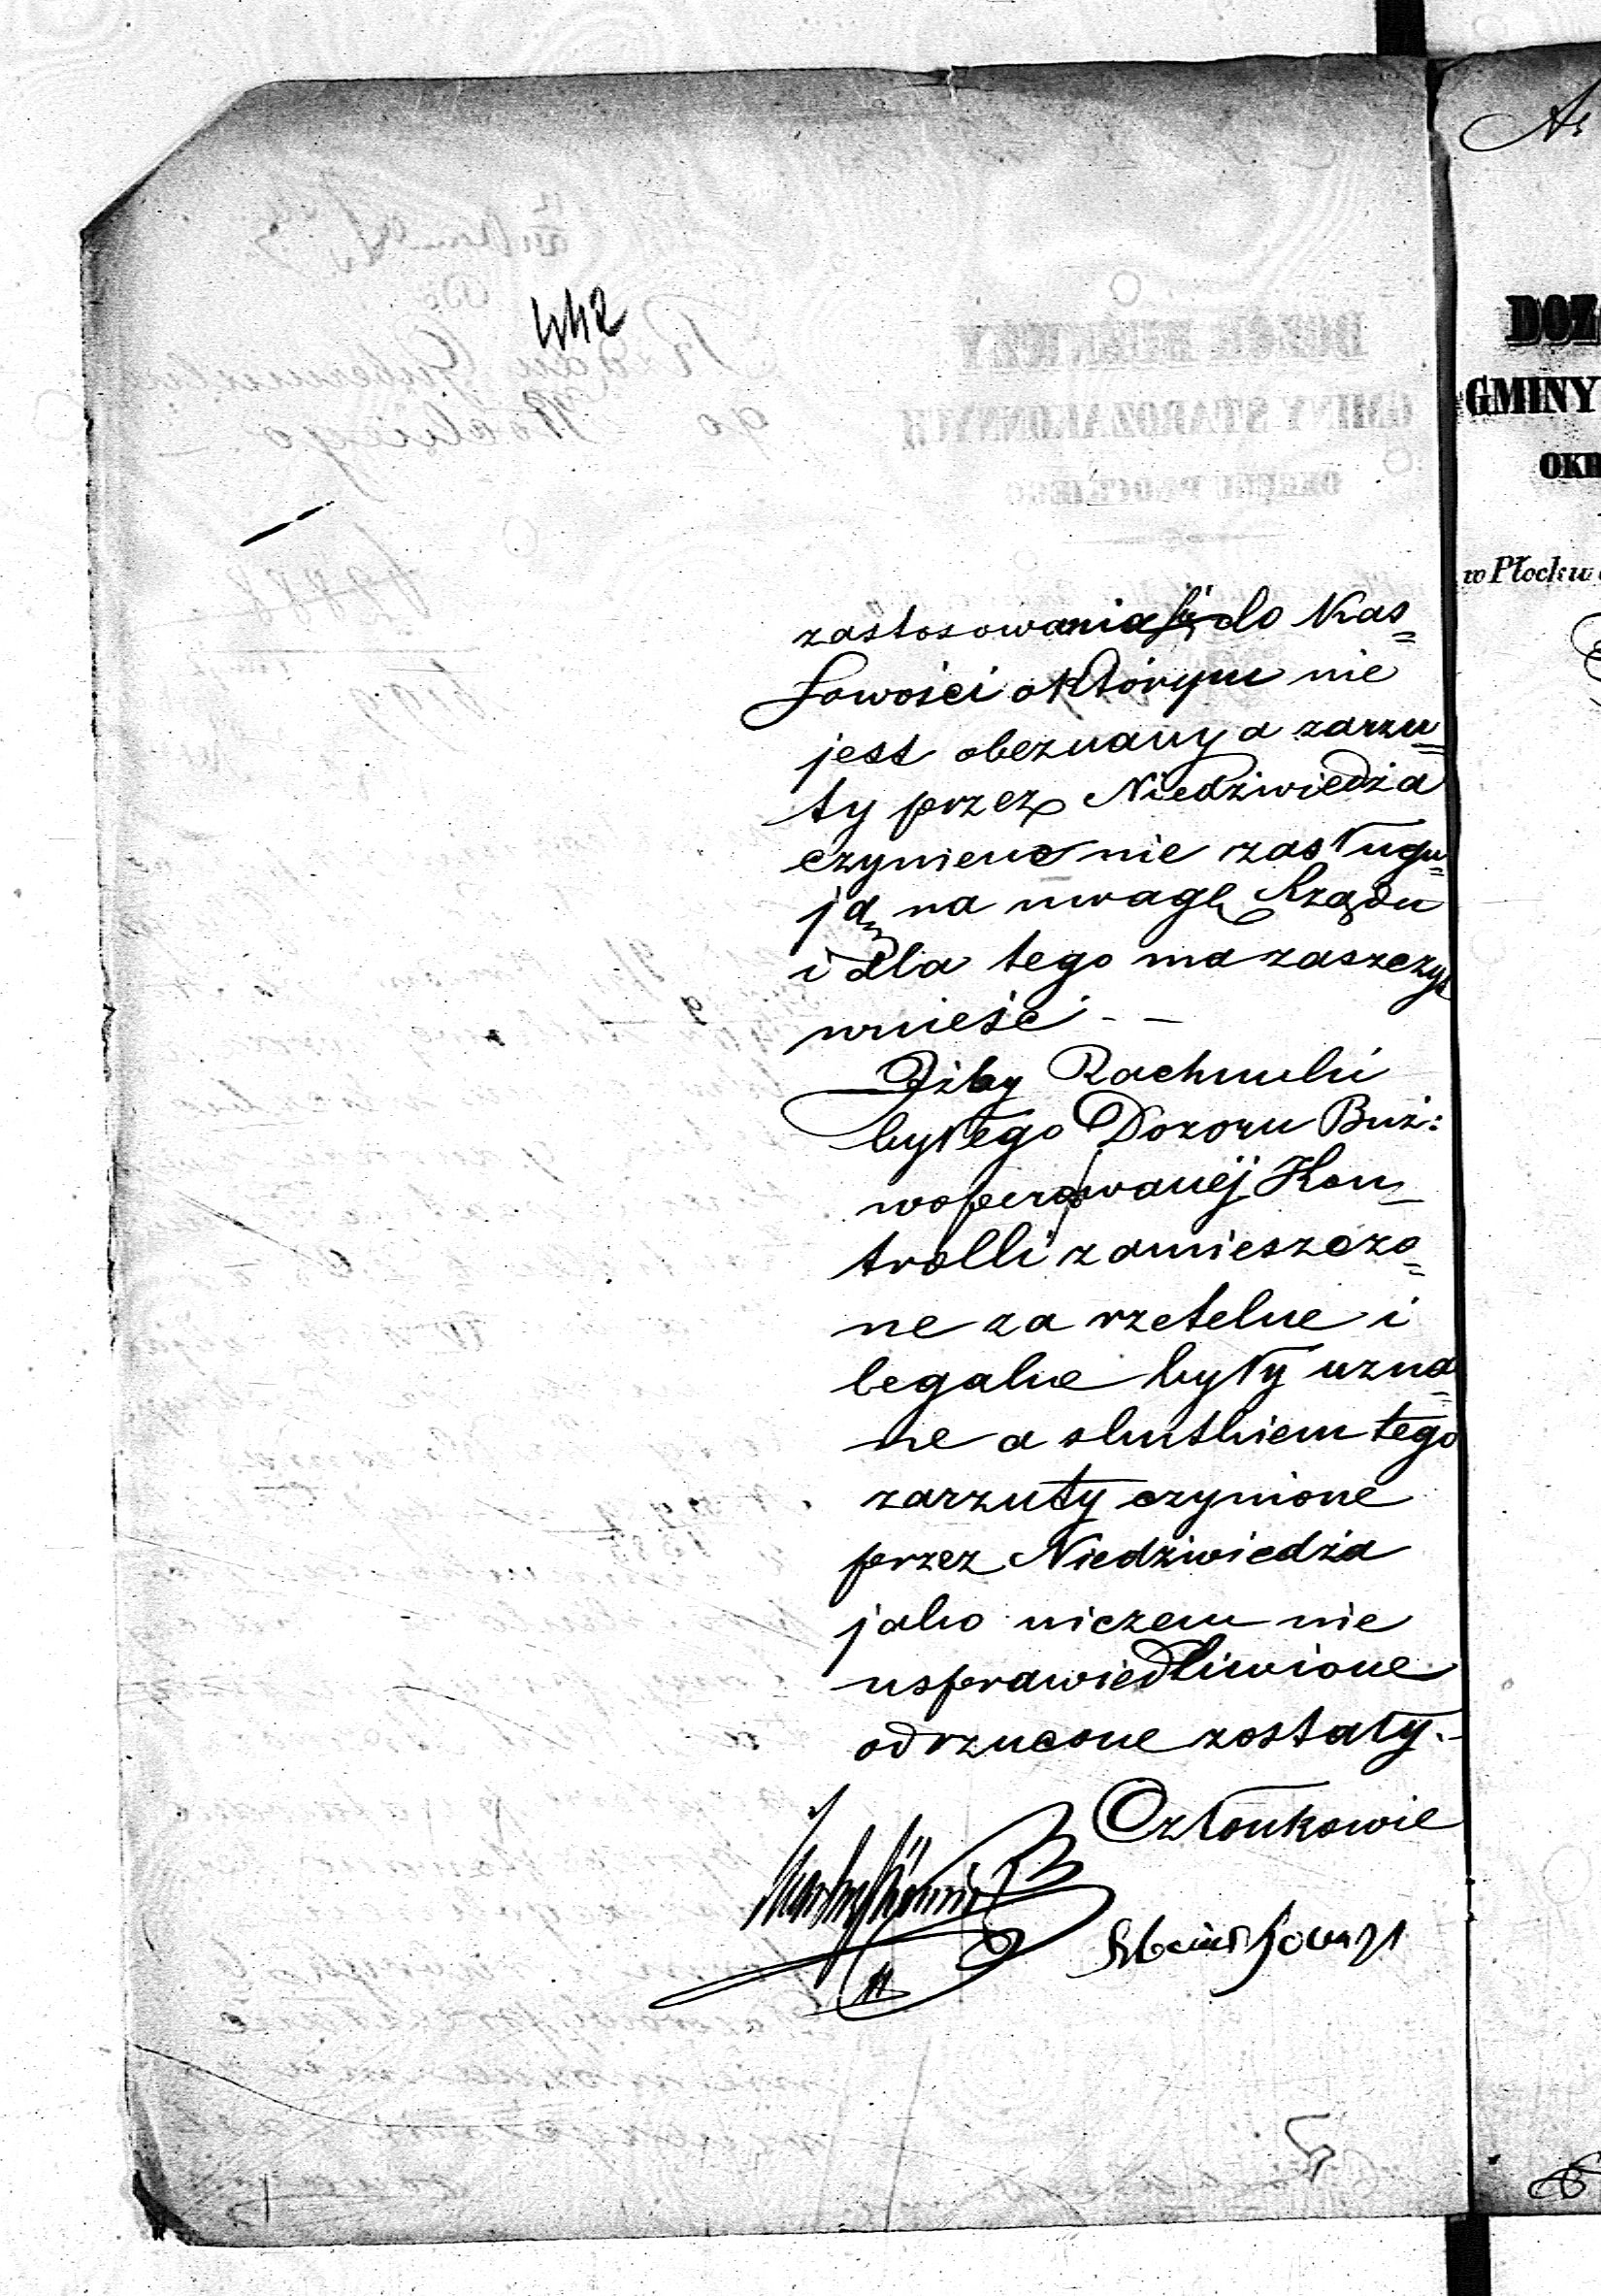 442
zastosowania się do Kas=
sowości o którym nie
jest obeznany a zarzu=
ty przez Niedźwiedzia
czynione nie zasługu=
ją na uwagę Rządu
i dla tego ma zaszczyt
wnieść - -
Ażby Rachunki
byłego Dozoru Buż:
w oferowanéj Kon_
trolli zamieszczo=
ne za rzetelne i
legalne były uzna=
ne a skutkiem tego
zarzuty czynione
przez Niedźwiedzia
jako niczem nie
usprawiedliwione
odrzucone zostały.-
Członkowie
DOZ
GMINY
OKR
w Płocku